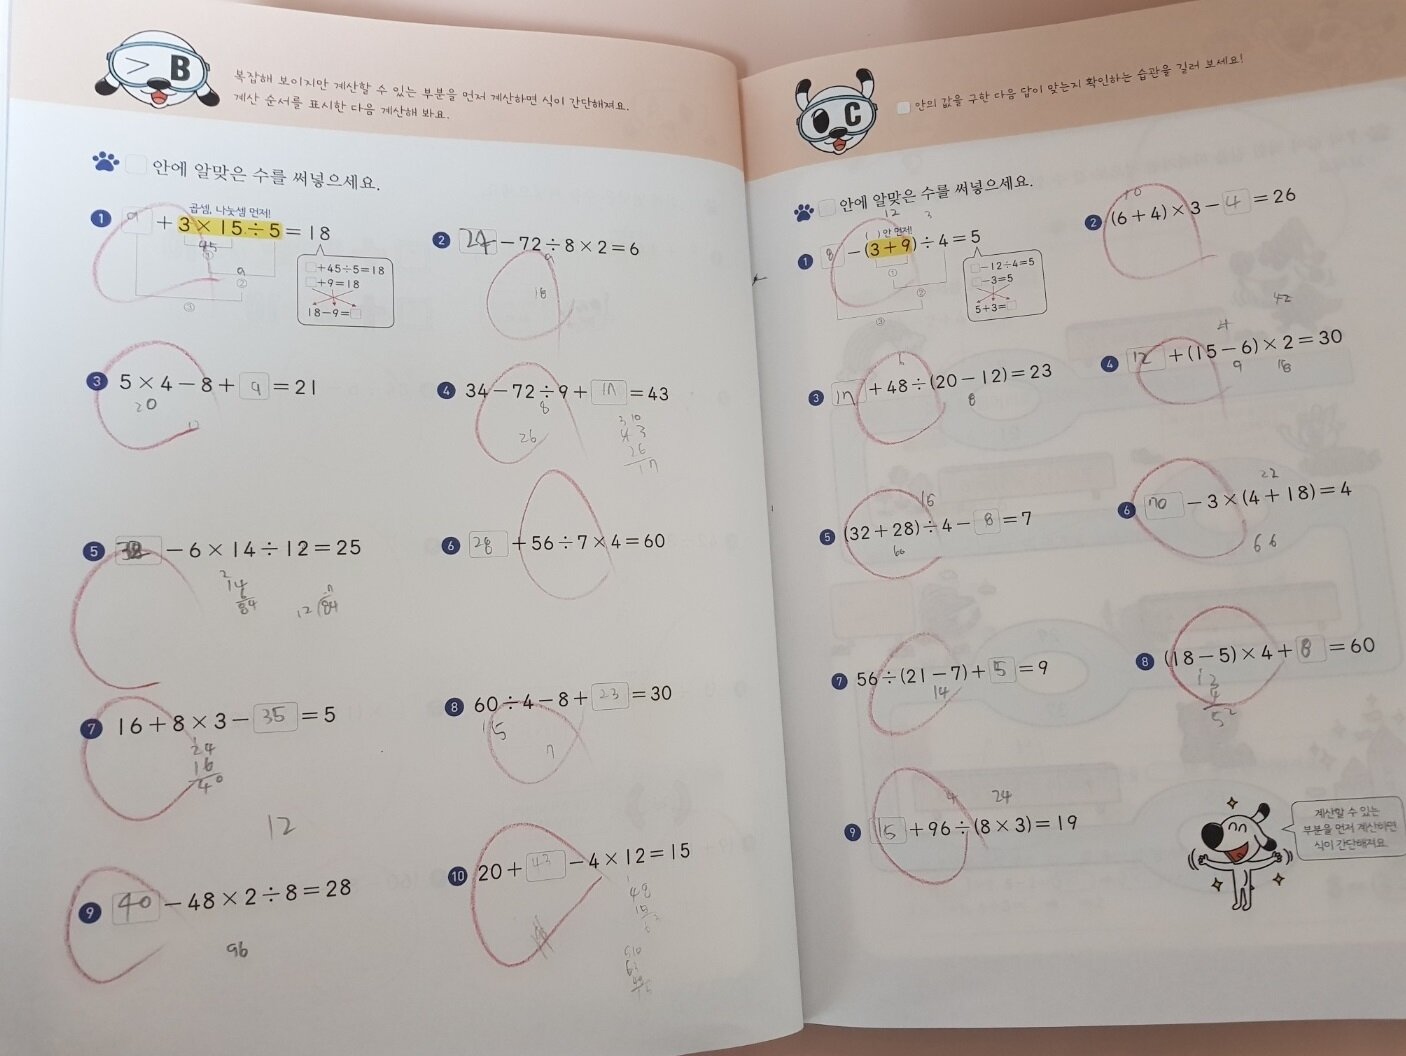 B
복잡해 보이지만 계산할 수 있는 부분을 먼저 계산하면 식이 간단해져요.
계산 순서를 표시한 다음 계산해 봐요.
안에 알맞은 수를 써넣으세요.
곱셈, 나눗셈 먼저!
1 9 + 3 × 15 ÷ 5 = 18
45
①
9
②
③
□+45÷5=18
□+9=18
18-9=□
2 24 - 72 ÷ 8 × 2 = 6
9
18
3 5 × 4 - 8 + 9 = 21
20
12
4 34 - 72 ÷ 9 + 17 = 43
8
26
3 10
43
26
17
5 - 6 × 14 ÷ 12 = 25
2
14
6
84
7
12 84
6 28 + 56 ÷ 7 × 4 = 60
7 16 + 8 × 3 - 35 = 5
24
16
40
8 60 ÷ 4 - 8 + 23 = 30
15
7
12
9 40 - 48 × 2 ÷ 8 = 28
96
10 20 + 43 - 4 × 12 = 15
48
15
63
C
□ 안의 값을 구한 다음 답이 맞는지 확인하는 습관을 길러 보세요!
안에 알맞은 수를 써넣으세요.
12 3
( ) 안 먼저!
1 8 - (3 + 9) ÷ 4 = 5
①
②
③
□-12÷4=5
□-3=5
5+3=□
10
2 (6 + 4) × 3 - 4 = 26
3 17 + 48 ÷ (20 - 12) = 23
8
42
4 12 + (15 - 6) × 2 = 30
9 18
16
5 (32 + 28) ÷ 4 - 8 = 7
60
22
6 70 - 3 × (4 + 18) = 4
66
7 56 ÷ (21 - 7) + 5 = 9
14
8 (18 - 5) × 4 + 8 = 60
13
4
52
4 24
9 15 + 96 ÷ (8 × 3) = 19
계산할 수 있는
부분을 먼저 계산하면
식이 간단해져요.